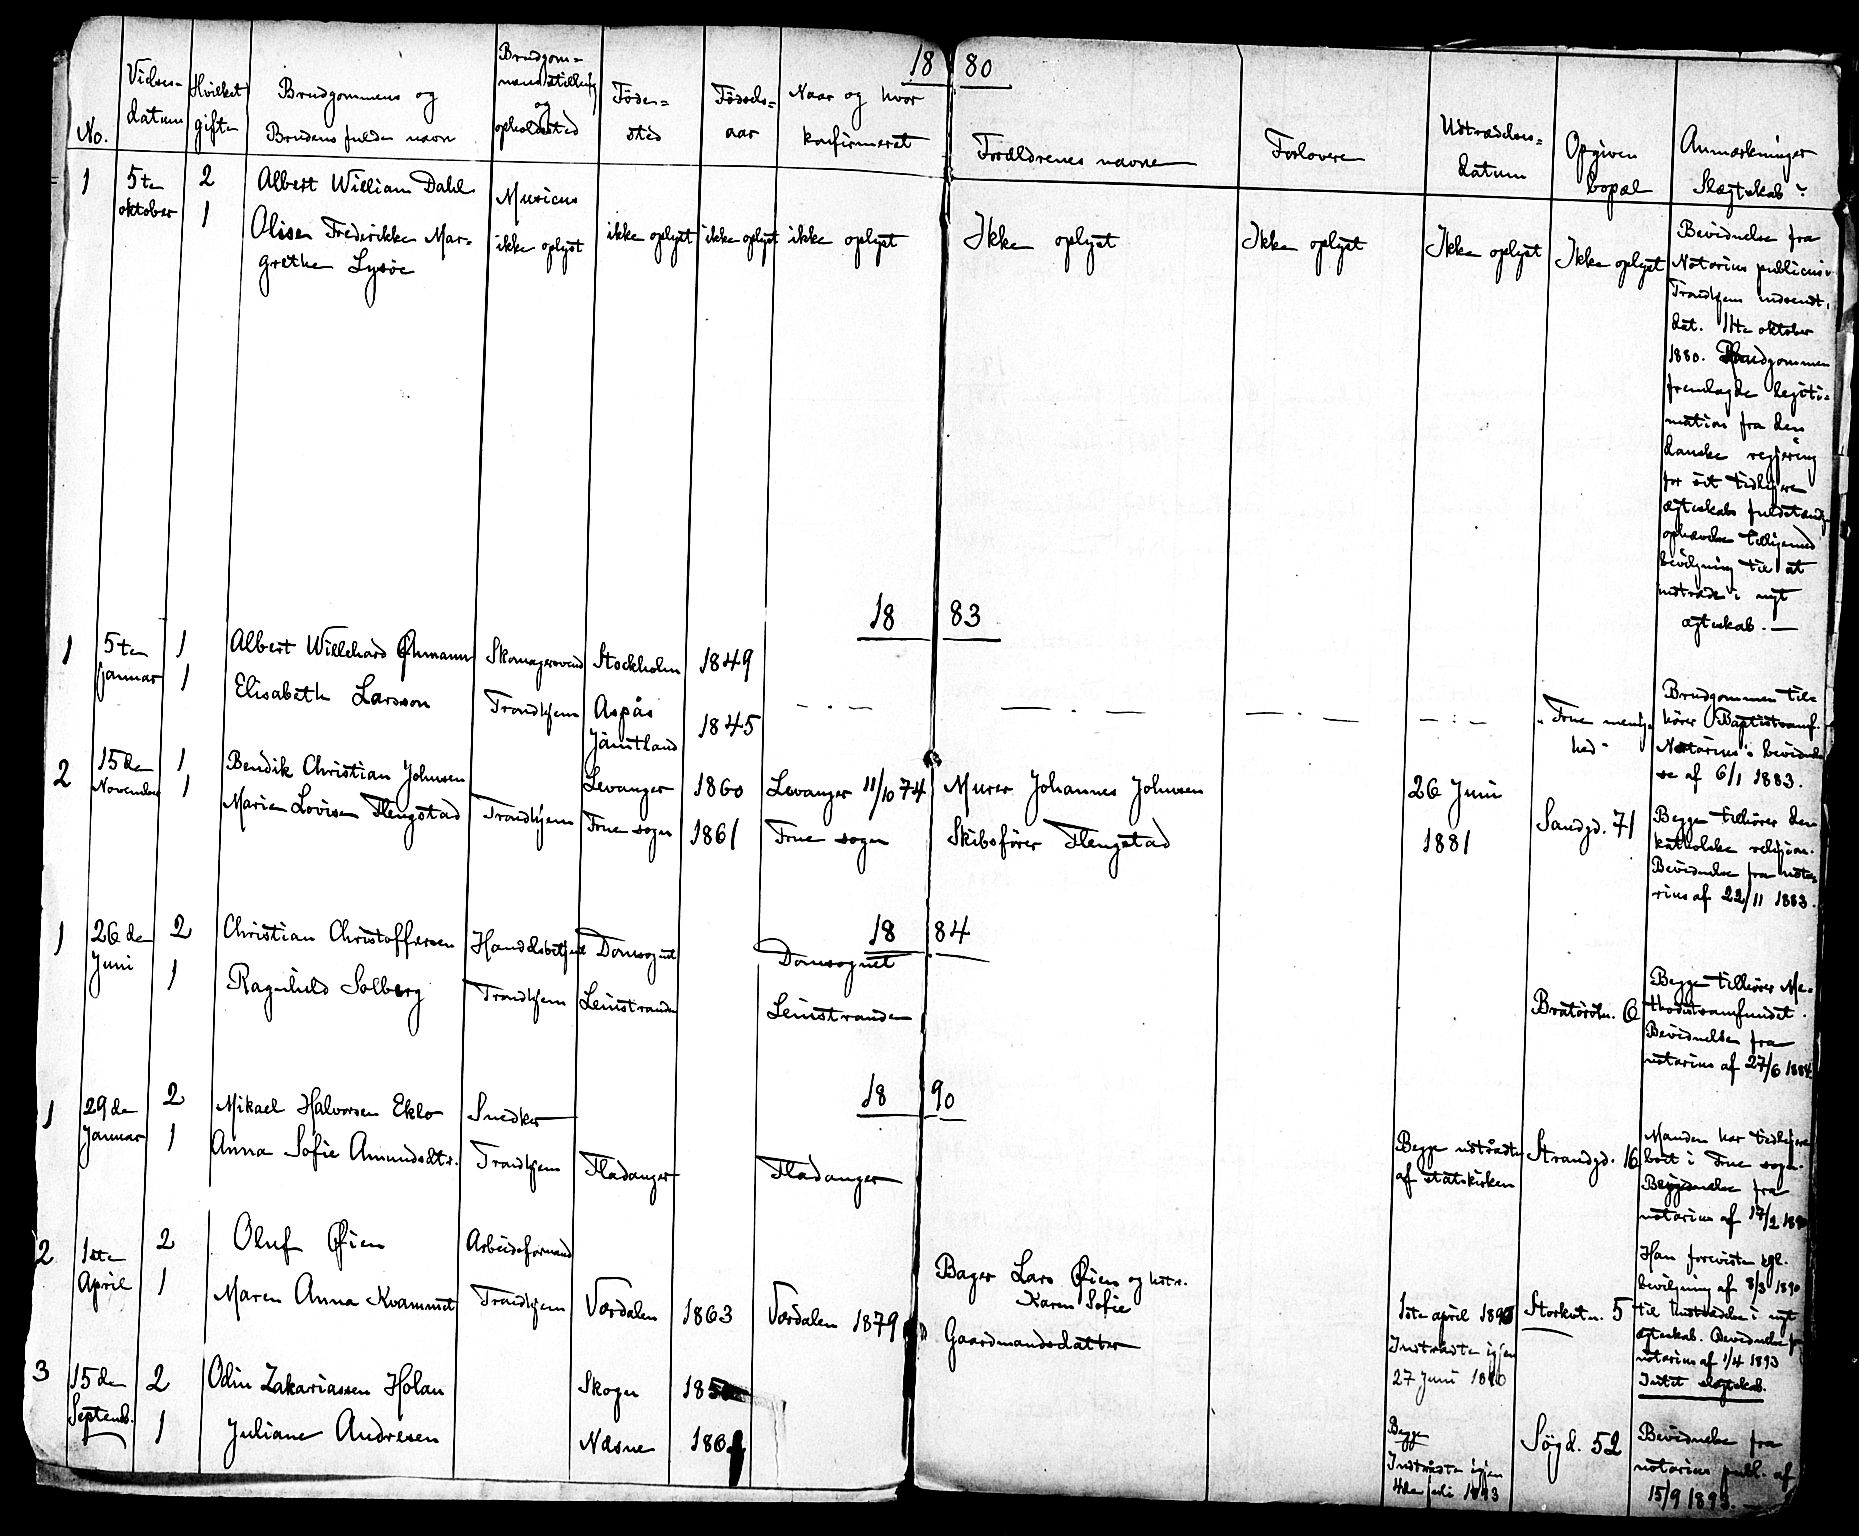 18 80
No.
Vielses-
datum
Hvilket
gifte
Brudgommens og
Brudens fulde navn
Brudgom-
mens stilling
og
opholdssted
Føde-
sted
Fødsels-
aar
Naar og hvor
konfirmeret
Forældrenes navne
Forlovere
Udtrædelses-
datum
Opgiven
bopæl
Anmærkninger
Slægtskab?
1
5te
oktober
2
1
Albert William Dahl
Olise Frederikke Mar-
grethe Lysöe
Musicus
ikke oplyst
ikke oplyst
ikke oplyst
ikke oplyst
Ikke oplyst
Ikke oplyst
Ikke oplyst
Ikke oplyst
Bevidnelse fra
Notarius publicus i
Trondhjem indsendt,
dat. 11te oktober
1880. Brudgommen
fremlagde legiti-
mation fra den
danske regjering
for sit tidligere
ægteskabs fuldstændige
ophævelse tilligemed
bevilgning til at
indtræde i nyt
ægteskab. —
18 83
1
5te
januar
1
1
Albert Willehard Öhmann
Elisabeth Larsson
Skomagersvend
Trondhjem
Stockholm
Aspås
Jämtland
1849
1845
— . —
— . —
— . —
— . —
" Frue menig-
hed "
Brudgommen til-
hörer Baptistsamf.
Notarius's bevidnel-
se af 6/1 1883.
2
15de
November
1
1
Bendik Christian Johnsen
Marie Lovise Flengstad
Trondhjem
Levanger
Frue sogn
1860
1861
Levanger 11/10 74
Frue sogn
Murer Johannes Johnsen
Skibsförer Flengstad
26 Juni
1881
Sandgd. 71
Begge tilhörer den
katholske religion.
Bevidnelse fra nota-
rius af 22/11 1883.
18 84
1
26de
Juni
2
1
Christian Christoffersen
Ragnhild Solberg
Handelsbetjent
Trondhjem
Domsognet
Leinstranden
Domsognet
Leinstranden
Bratörstr. 6
Begge tilhörer Me-
thodistsamfundet.
Bevidnelse fra
notarius af 27/6 1884.
18 90
1
29de
Januar
2
1
Mikael Halvorsen Eklo
Anna Sofie Amundsdtr.
Snedker
Trondhjem
Fladanger
Fladanger
Begge udtrådte
af statskirken
Strandgd. 16
Manden har tidligere
boet i Frue sogn.
Bevidnelse fra
notarius af 17/2 1890
2
1ste
April
2
1
Oluf Öien
Maren Anna Kvammet
Arbeidsformand
Trondhjem
Værdalen
1863
Værdalen 1879
Bager Lars Öien og hstr.
Karen Sofie
Gaardmandsdatter
1ste april 1890
Indtrådte igjen
27 Juni 1890
Storket n. 5
Han foreviste kgl.
bevilgning af 8/3 1890
til indtrædelse i nyt
ægteskab. Bevidnelse fr
notarius af 1/4 1893
Intet slægtskab.
3
15de
Septemb.
2
1
Odin Zakariassen Holan
Juliane Andresen
Skogn
Næsne
185
186
Begge
Indtrådte igjen
4de juli 1893
Søgd. 52
Bevidnelse fra
notarius publ. af
15/9 1893. —